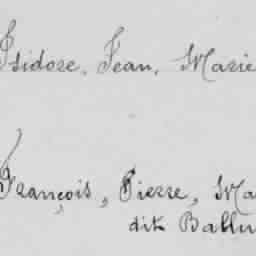 Isidore, Jean, Marie
François, Pierre, Ma
dit Ballu